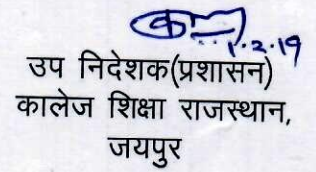 1.2.19
उप निदेशक(प्रशासन)
कालेज शिक्षा राजस्थान,
जयपुर